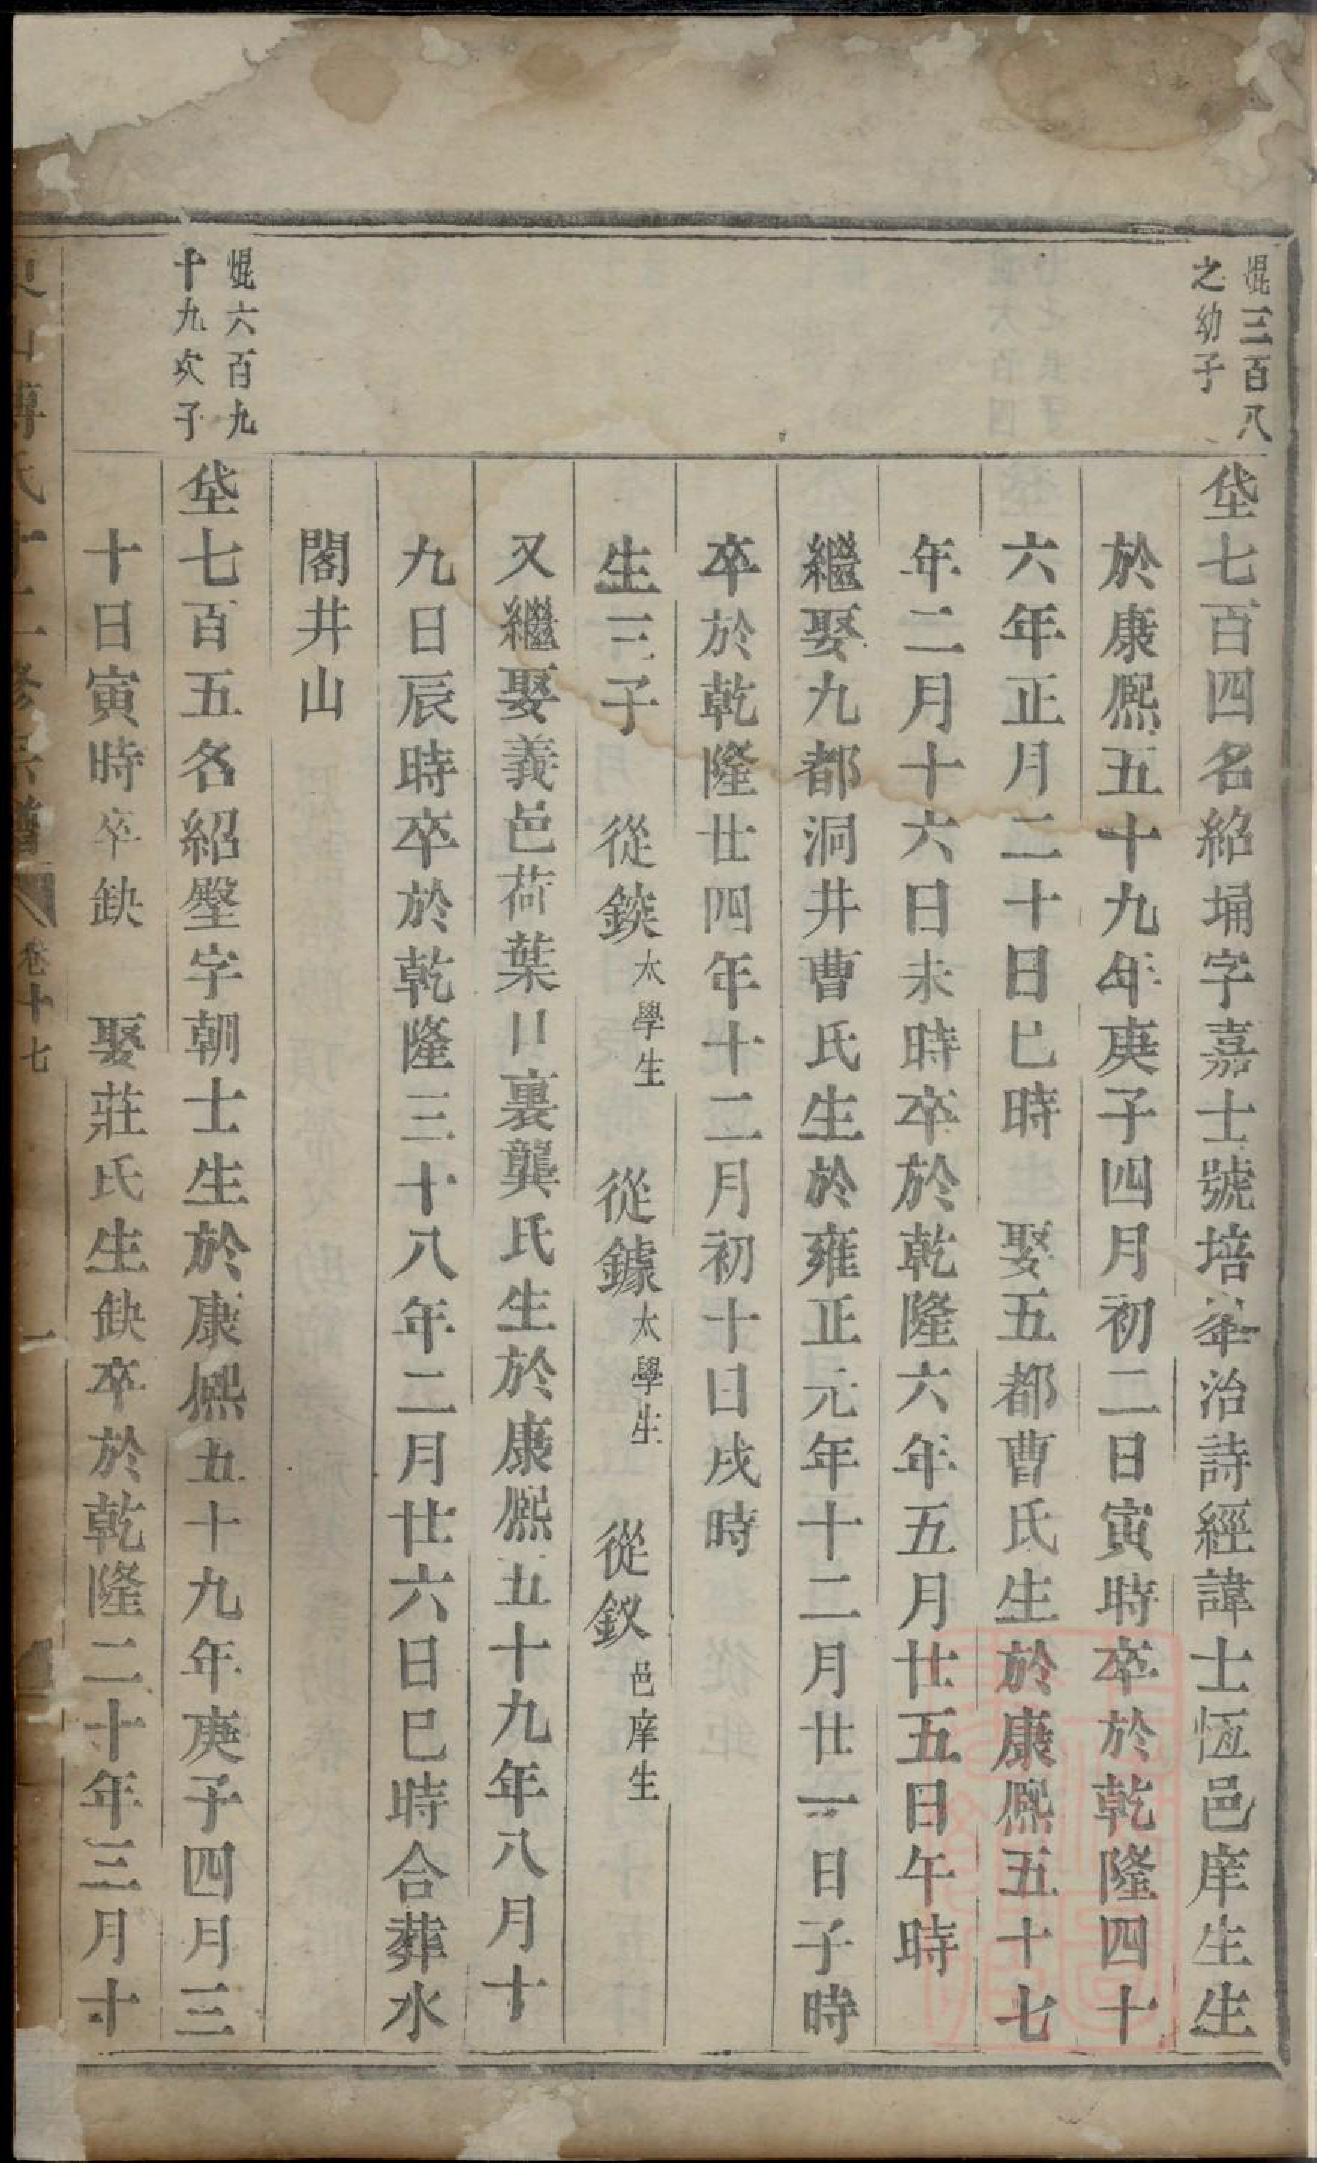 焜三百八
之幼子
垈七百四名紹埇字嘉士號培峯治詩經諱士恆邑庠生生
於康熈五十九年庚子四月初二日寅時卒於乾隆四十
六年正月二十日巳時 娶五都曹氏生於康熈五十七
年二月十六日未時卒於乾隆六年五月廿五日午時
繼娶九都洞井曹氏生於雍正元年十二月廿一日子時
卒於乾隆廿四年十二月初十日戌時
生三子 從錟太學生 從鐻太學生 從釹邑庠生
又繼娶義邑荷葉口裏龔氏生於康熈五十九年八月十
九日辰時卒於乾隆三十八年二月廿六日巳時合葬水
閣井山
焜六百九
十九次子
垈七百五名紹壂字朝士生於康熈五十九年庚子四月三
十日寅時卒缺 娶莊氏生缺卒於乾隆二十年三月十
卷十七 一